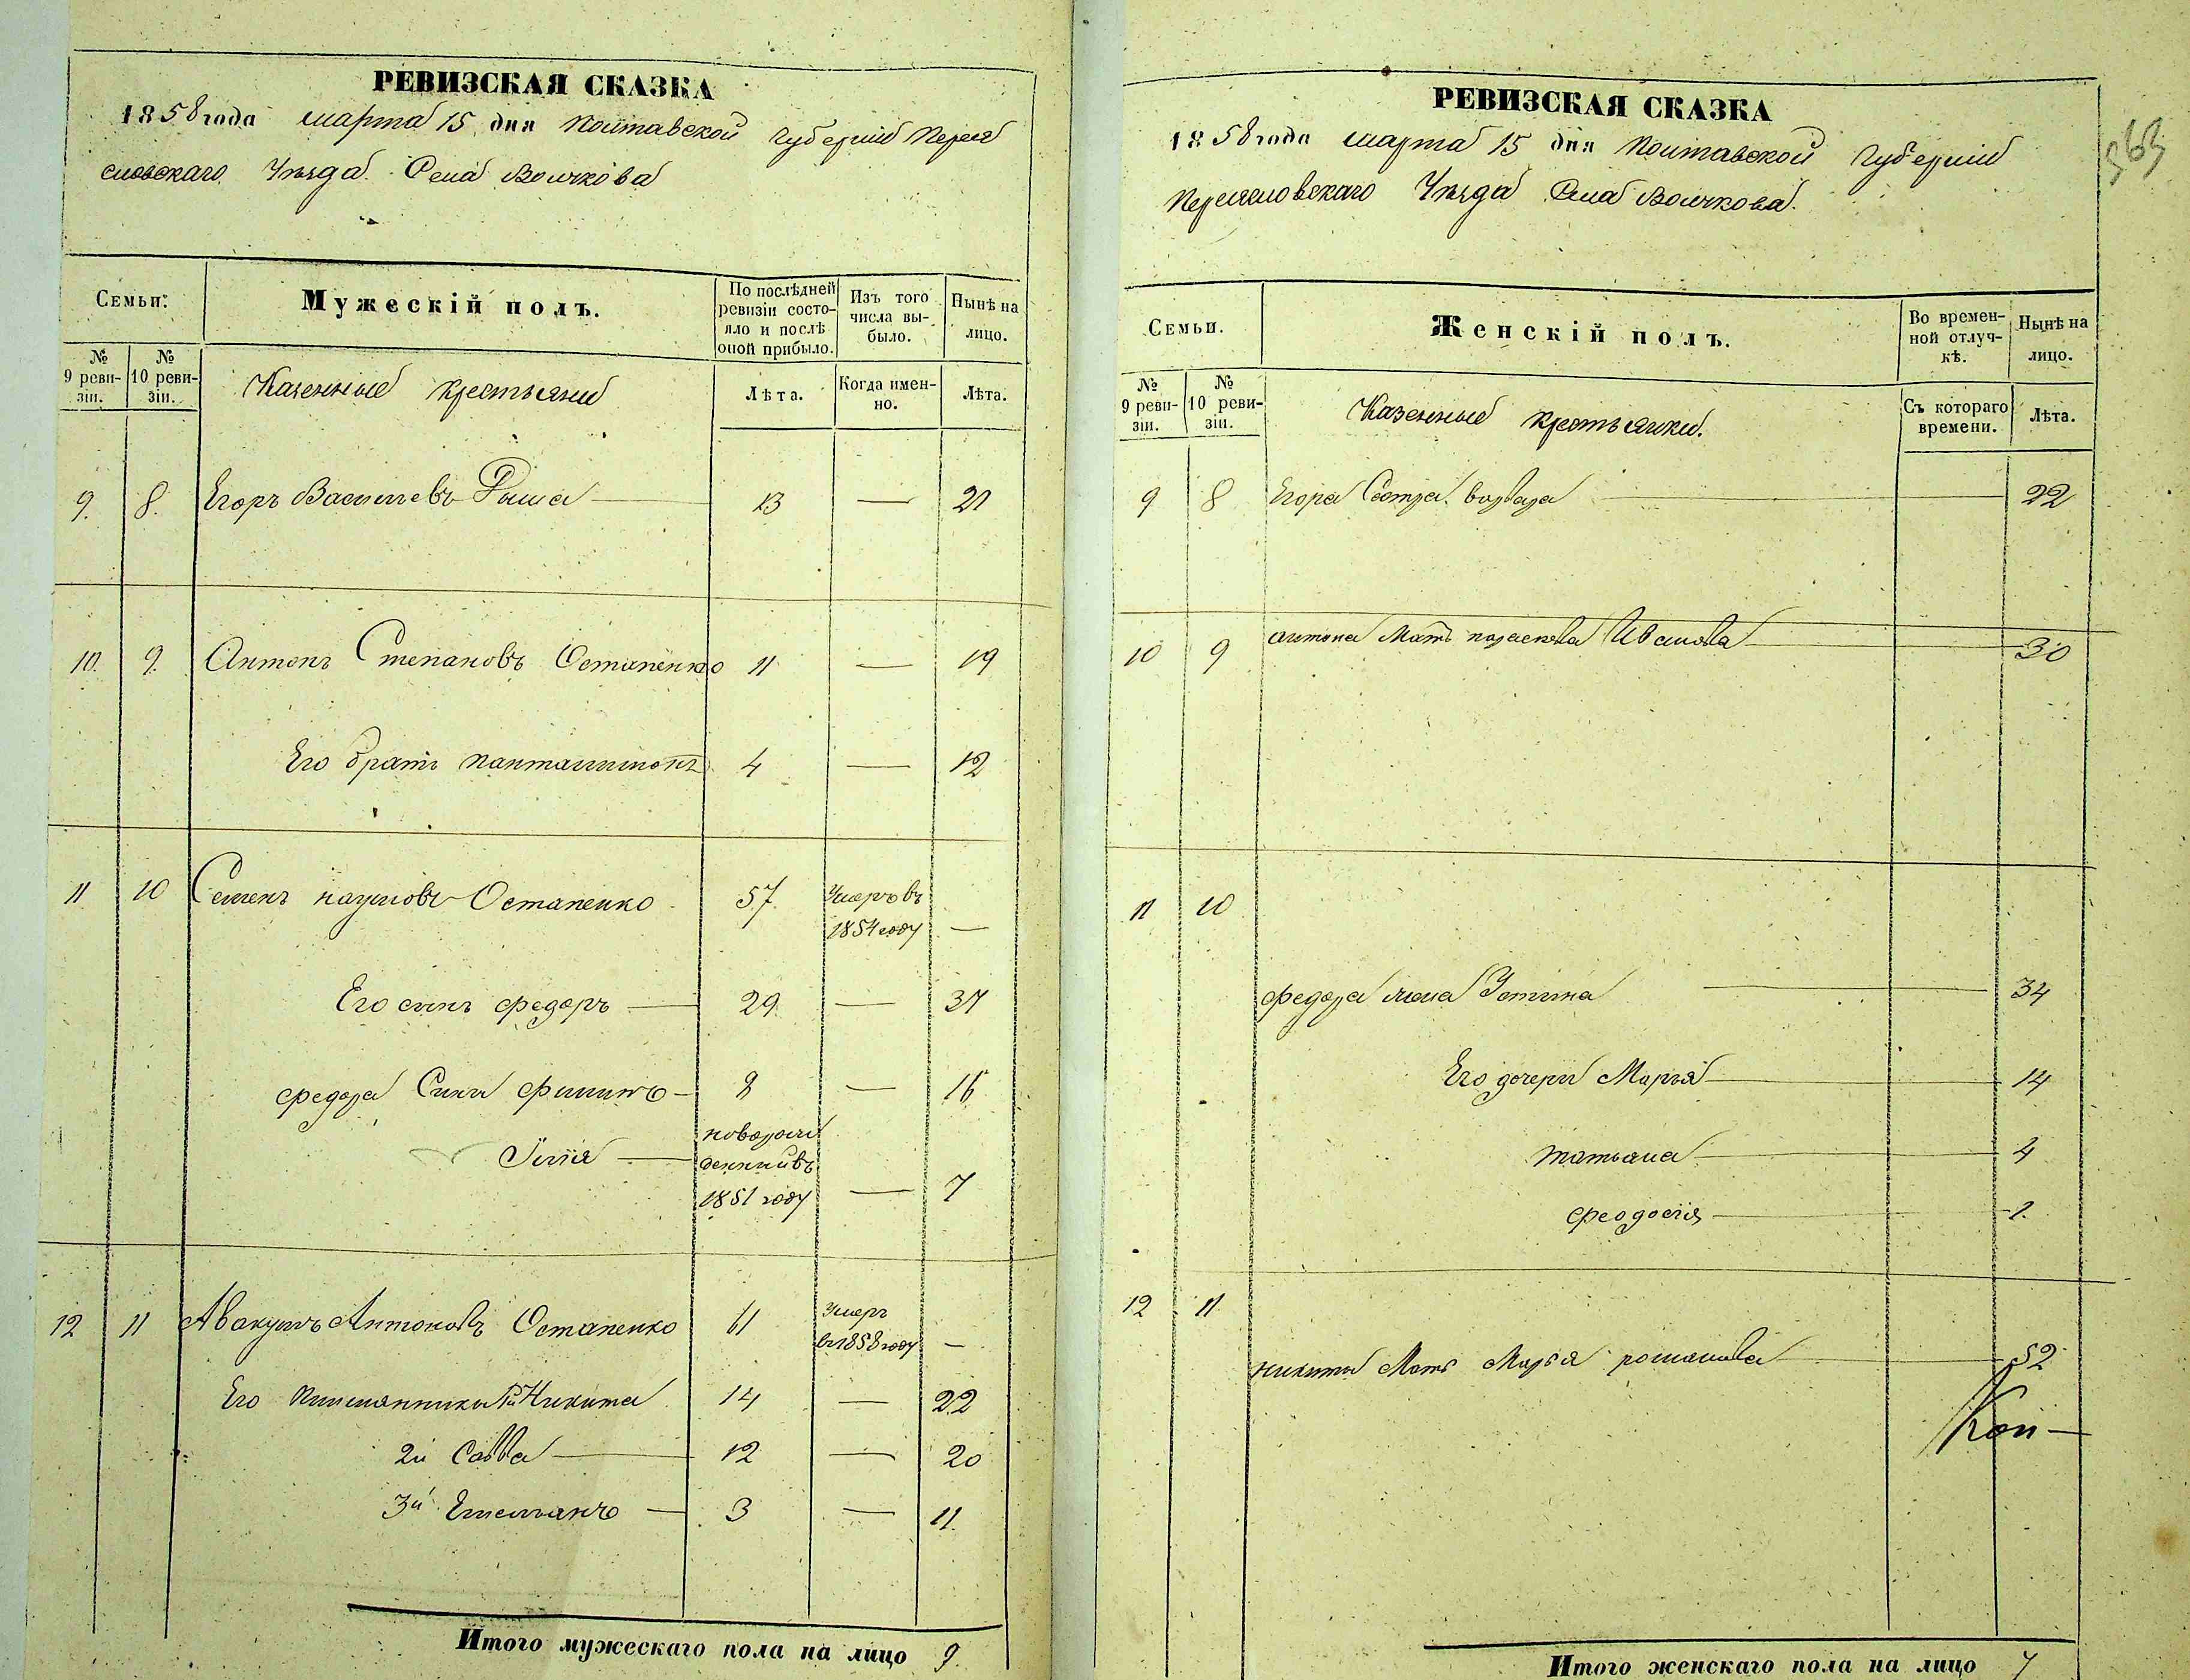 РЕВИЗСКАЯ СКАЗКА
1858 года марта 15 дня Полтавской Губерніи Перея
словскаго Уезда Села Волчкова
Семьи.
Мужескій полъ.
По послѣдней ревизіи состояло и послѣ оной прибыло.
Изъ того числа выбыло.
Нынѣ на лицо.
№ 9 ревизіи.
№ 10 ревизіи.
Казенные крестьяне
Лѣта.
Когда именно.
Лѣта.
9. 8. Егоръ Васильевъ 13 — 21
10. 9. Антонъ Степановъ Остапенко 11 — 19
Его братъ Панталимонъ 4 — 12
11 10 Семенъ Наумовъ Остапенко 57 Умеръ въ
1854 году —
Его сынъ Федоръ — 29 — 37
Федора Сыны Филипъ — 8 — 16
новорож
Илія — денный въ
1851 году — 7
12 11 Авакумъ Антоновъ Остапенко 61 Умеръ
въ 1858 году —
Его племянники 1й Никита 14 — 22
2й Савва — 12 — 20
3й Емельянъ — 3 — 11.
Итого мужескаго пола на лицо 9.
РЕВИЗСКАЯ СКАЗКА
1858 года марта 15 дня Полтавской Губерніи
Переясловскаго Уезда Села Волчкова.
Семьи.
Женскій полъ.
Во временной отлучкѣ.
Нынѣ на лицо.
№ 9 ревизіи.
№ 10 ревизіи.
Казенные крестьянки.
Съ котораго времени.
Лѣта.
9 8 Егора Сестра Варвара — 22
10 9 Антона Мать Параскева Иванова — 30
11 10
Федора жена Устина — 34
Его дочери Марья — 14
Татьяна — 4
Феодосія — 1.
12 11.
Никиты Мать Марья Романова — 52
Итого женскаго пола на лицо 7